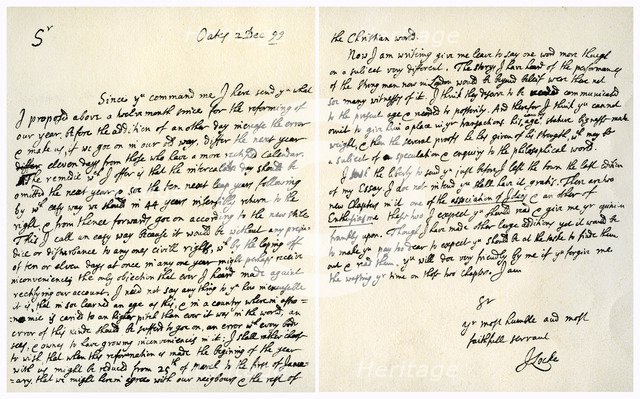 Sr
Oates 2 Dec 99
Since yr command me I here send yu what
I proposed above a twelvemonth since for the reforming of
our year, before the addition of another day increase the error
& make us, if we go on in our old way, differ the next year
eleven days from those who have a more rectified Calendar.
The remedie wch I offer is that the intercalar day should be
omitted the next year & soe the ten next leap years following
by wch easy way we should in 44 years insensibly return to the
right & from thence forwards goe on according to the new stile
This I call an easy way because it would be without any preju-
dice or disturbance to any ones civill rights, wch by the loping off
of ten or eleven days at once in any one year might perhaps receive
inconveniencys the only objection that ever I heard made against
rectifying our account. I need not say any thing to yu how inexcusable
it is that in soe learned an age as this, & in a country wherein astro-
nomie is caried to an higher pitch than ever it was in the world, an
error of this kinde should be sufferd to goe on, an error wch every body
sees, & ownes to have growing inconveniencies in it: I shall rather choose
to wish that when this reformation is made the begining of the year
with us might be reduced from 25th of March to the first of Janu-
ary, that we might herein agree with our neighbours & the rest of
the Christian world.
Now I am writing give me leave to say one word more though
on a subject very different. The storys I have heard of the performances
of the strong man now in London would be beyond beleif were there not
soe many witnesses of it. I think they deserve to be communicated
to the present age & recorded to posterity. And therefor I think yu cannot
omit to give him a place in yr transactions his age, stature
weight, & then the several proofs he has given of his strength, wch may be
a subject of speculation & enquiry to the philosophical world.
I took the liberty to send yu just before I left the town the last edition
of my Essay I doe not intend yu shall have it gratis. There are two
new Chapters in it one of the association of Ideas & an other of
Enthusiasme these two I expect yu should read & give me yr opinion
frankly upon. Though I have made other large additions yet it would be
to make yu pay too dear to expect yu should be at the taske to finde them
out & read them. yu will doe very friendly by me if yu forgive me
the wasting yr time on these two chapters. I am
Sr
yr most humble and most
faithfull servant
J Locke
Heritage